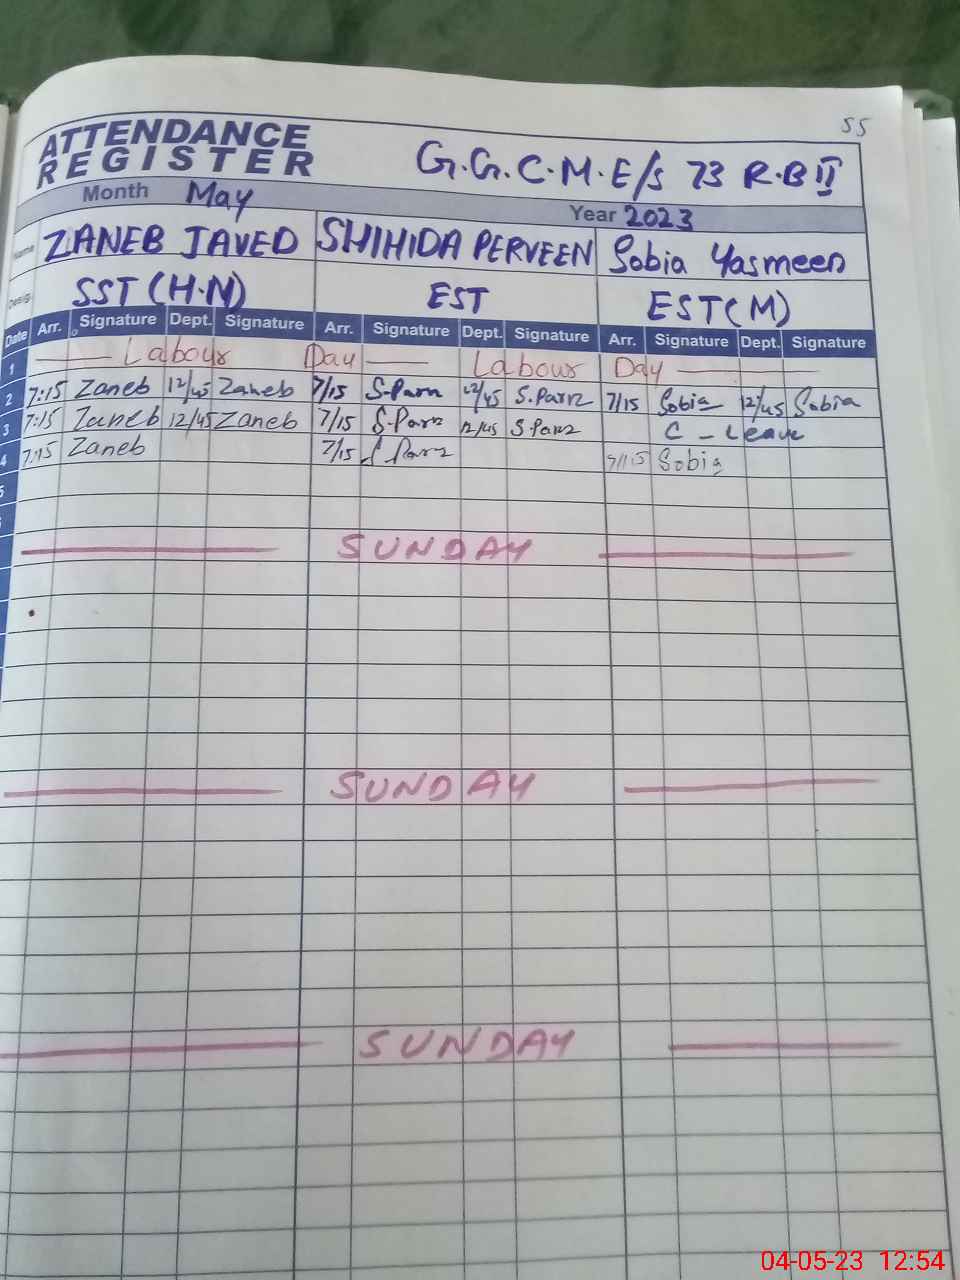 55
ATTENDANCE
REGISTER
G.G.C.M.E/S 73 R.B II
Month May Year 2023
Name ZANEB JAVED SHIHIDA PERVEEN Sobia Yasmeen
Desig. SST (H.M) EST EST(M)
Date Arr. Signature Dept. Signature Arr. Signature Dept. Signature Arr. Signature Dept. Signature
1 Labour Day Labour Day
2 7:15 Zaneb 12/45 Zaneb 7/15 S.Parn 12/45 S.Parn 7/15 Sobia 12/45 Sobia
3 7:15 Zaneb 12/45 Zaneb 7/15 S.Parn 12/45 S Parn C - Leave
4 7:15 Zaneb 7/15 S Parn 7/15 Sobia
5
SUNDAY
SUNDAY
SUNDAY
04-05-23 12:54